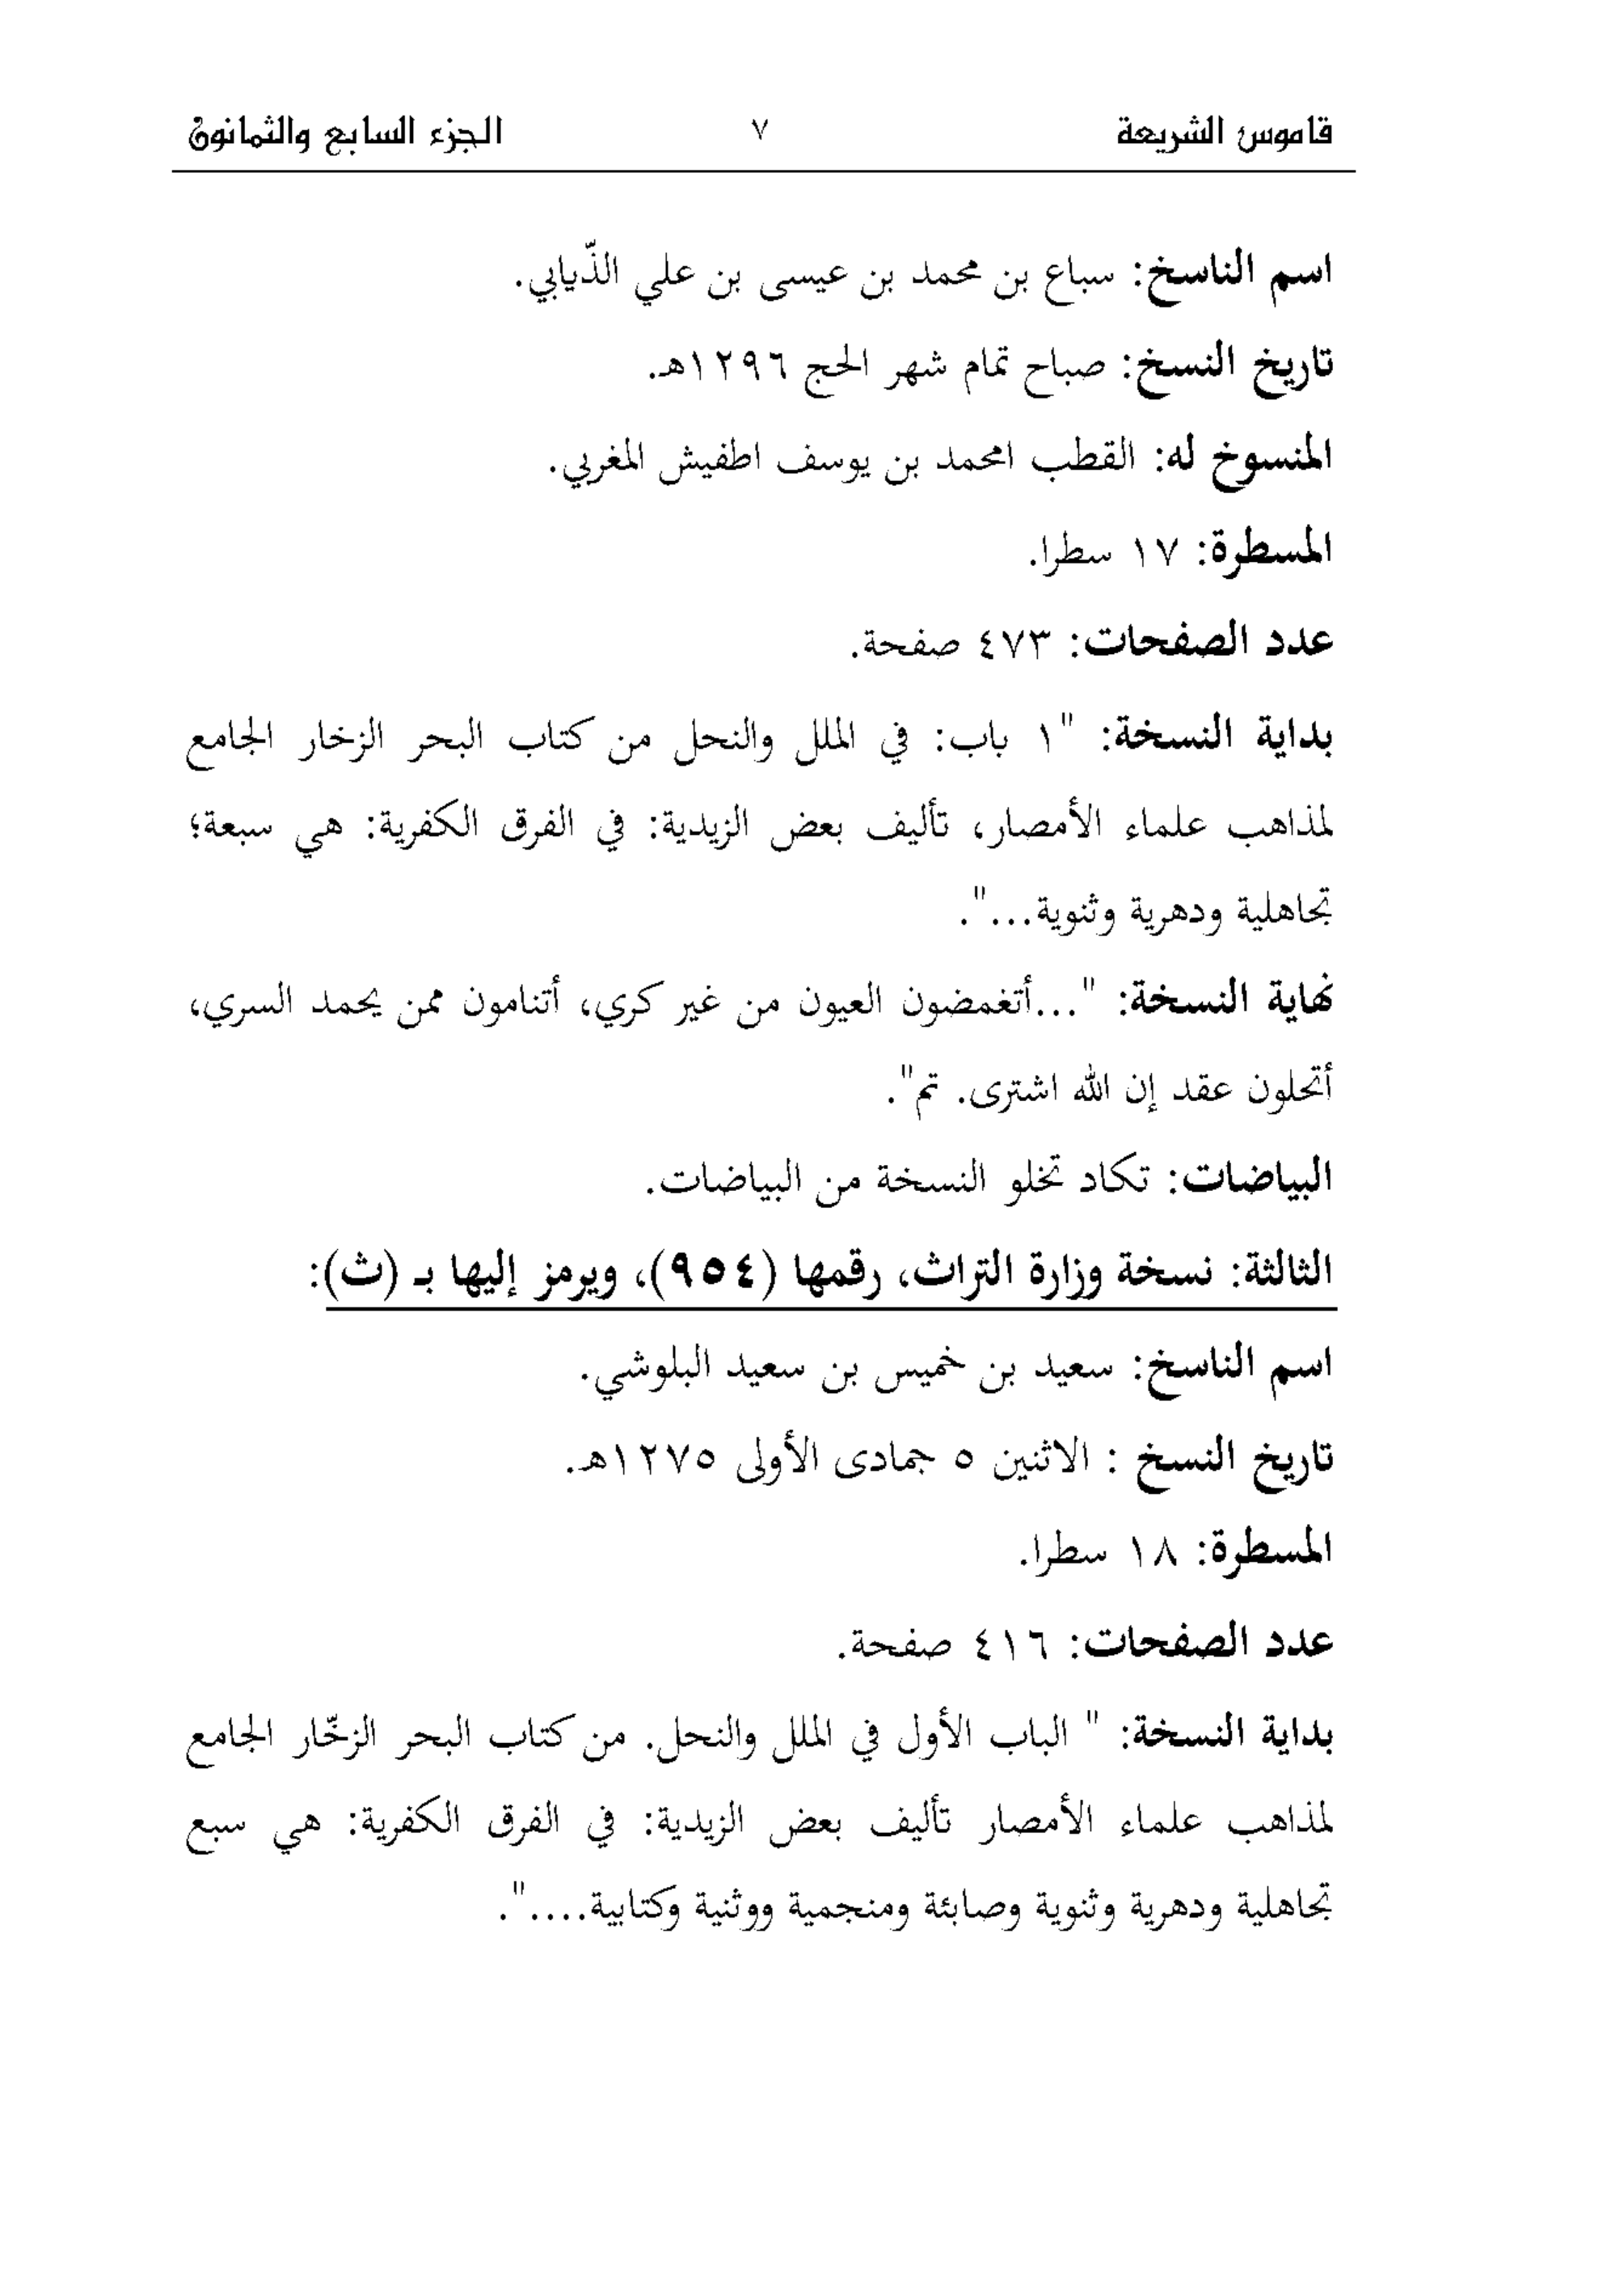 قاموس الشريعة ٧ الجزء السابع والثمانون
اسم الناسخ: سباع بن محمد بن عيسى بن علي الذّيابي.
تاريخ النسخ: صباح تمام شهر الحج ١٢٩٦هـ.
المنسوخ له: القطب امحمد بن يوسف اطفيش المغربي.
المسطرة: ١٧ سطرا.
عدد الصفحات: ٤٧٣ صفحة.
بداية النسخة: "١ باب: في الملل والنحل من كتاب البحر الزخار الجامع
لمذاهب علماء الأمصار، تأليف بعض الزيدية: في الفرق الكفرية: هي سبعة؛
تجاهلية ودهرية وثنوية...".
نهاية النسخة: "...أتغمضون العيون من غير كري، أتنامون ممن يحمد السري،
أتحلون عقد إن الله اشترى. تم".
البياضات: تكاد تخلو النسخة من البياضات.
الثالثة: نسخة وزارة التراث، رقمها (٩٥٤)، ويرمز إليها بـ (ث):
اسم الناسخ: سعيد بن خميس بن سعيد البلوشي.
تاريخ النسخ : الاثنين ٥ جمادى الأولى ١٢٧٥هـ.
المسطرة: ١٨ سطرا.
عدد الصفحات: ٤١٦ صفحة.
بداية النسخة: " الباب الأول في الملل والنحل. من كتاب البحر الزخّار الجامع
لمذاهب علماء الأمصار تأليف بعض الزيدية: في الفرق الكفرية: هي سبع
تجاهلية ودهرية وثنوية وصابئة ومنجمية ووثنية وكتابية....".